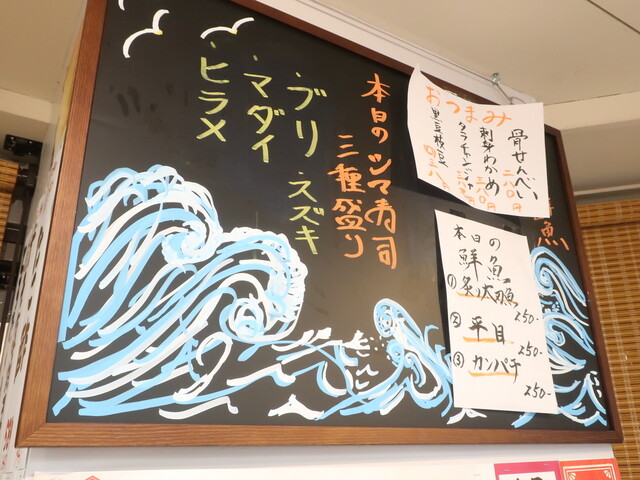 本日のシマ寿司
三種盛り
・ブリ ・スズキ
・マダイ
・ヒラメ
おつまみ
骨せんべい
二八〇円
刺身わかめ
クラチャンジャ
黒豆枝豆
本日の
鮮魚
① 炙太刀魚
250-
② 平目
250-
③ カンパチ
250-
魚